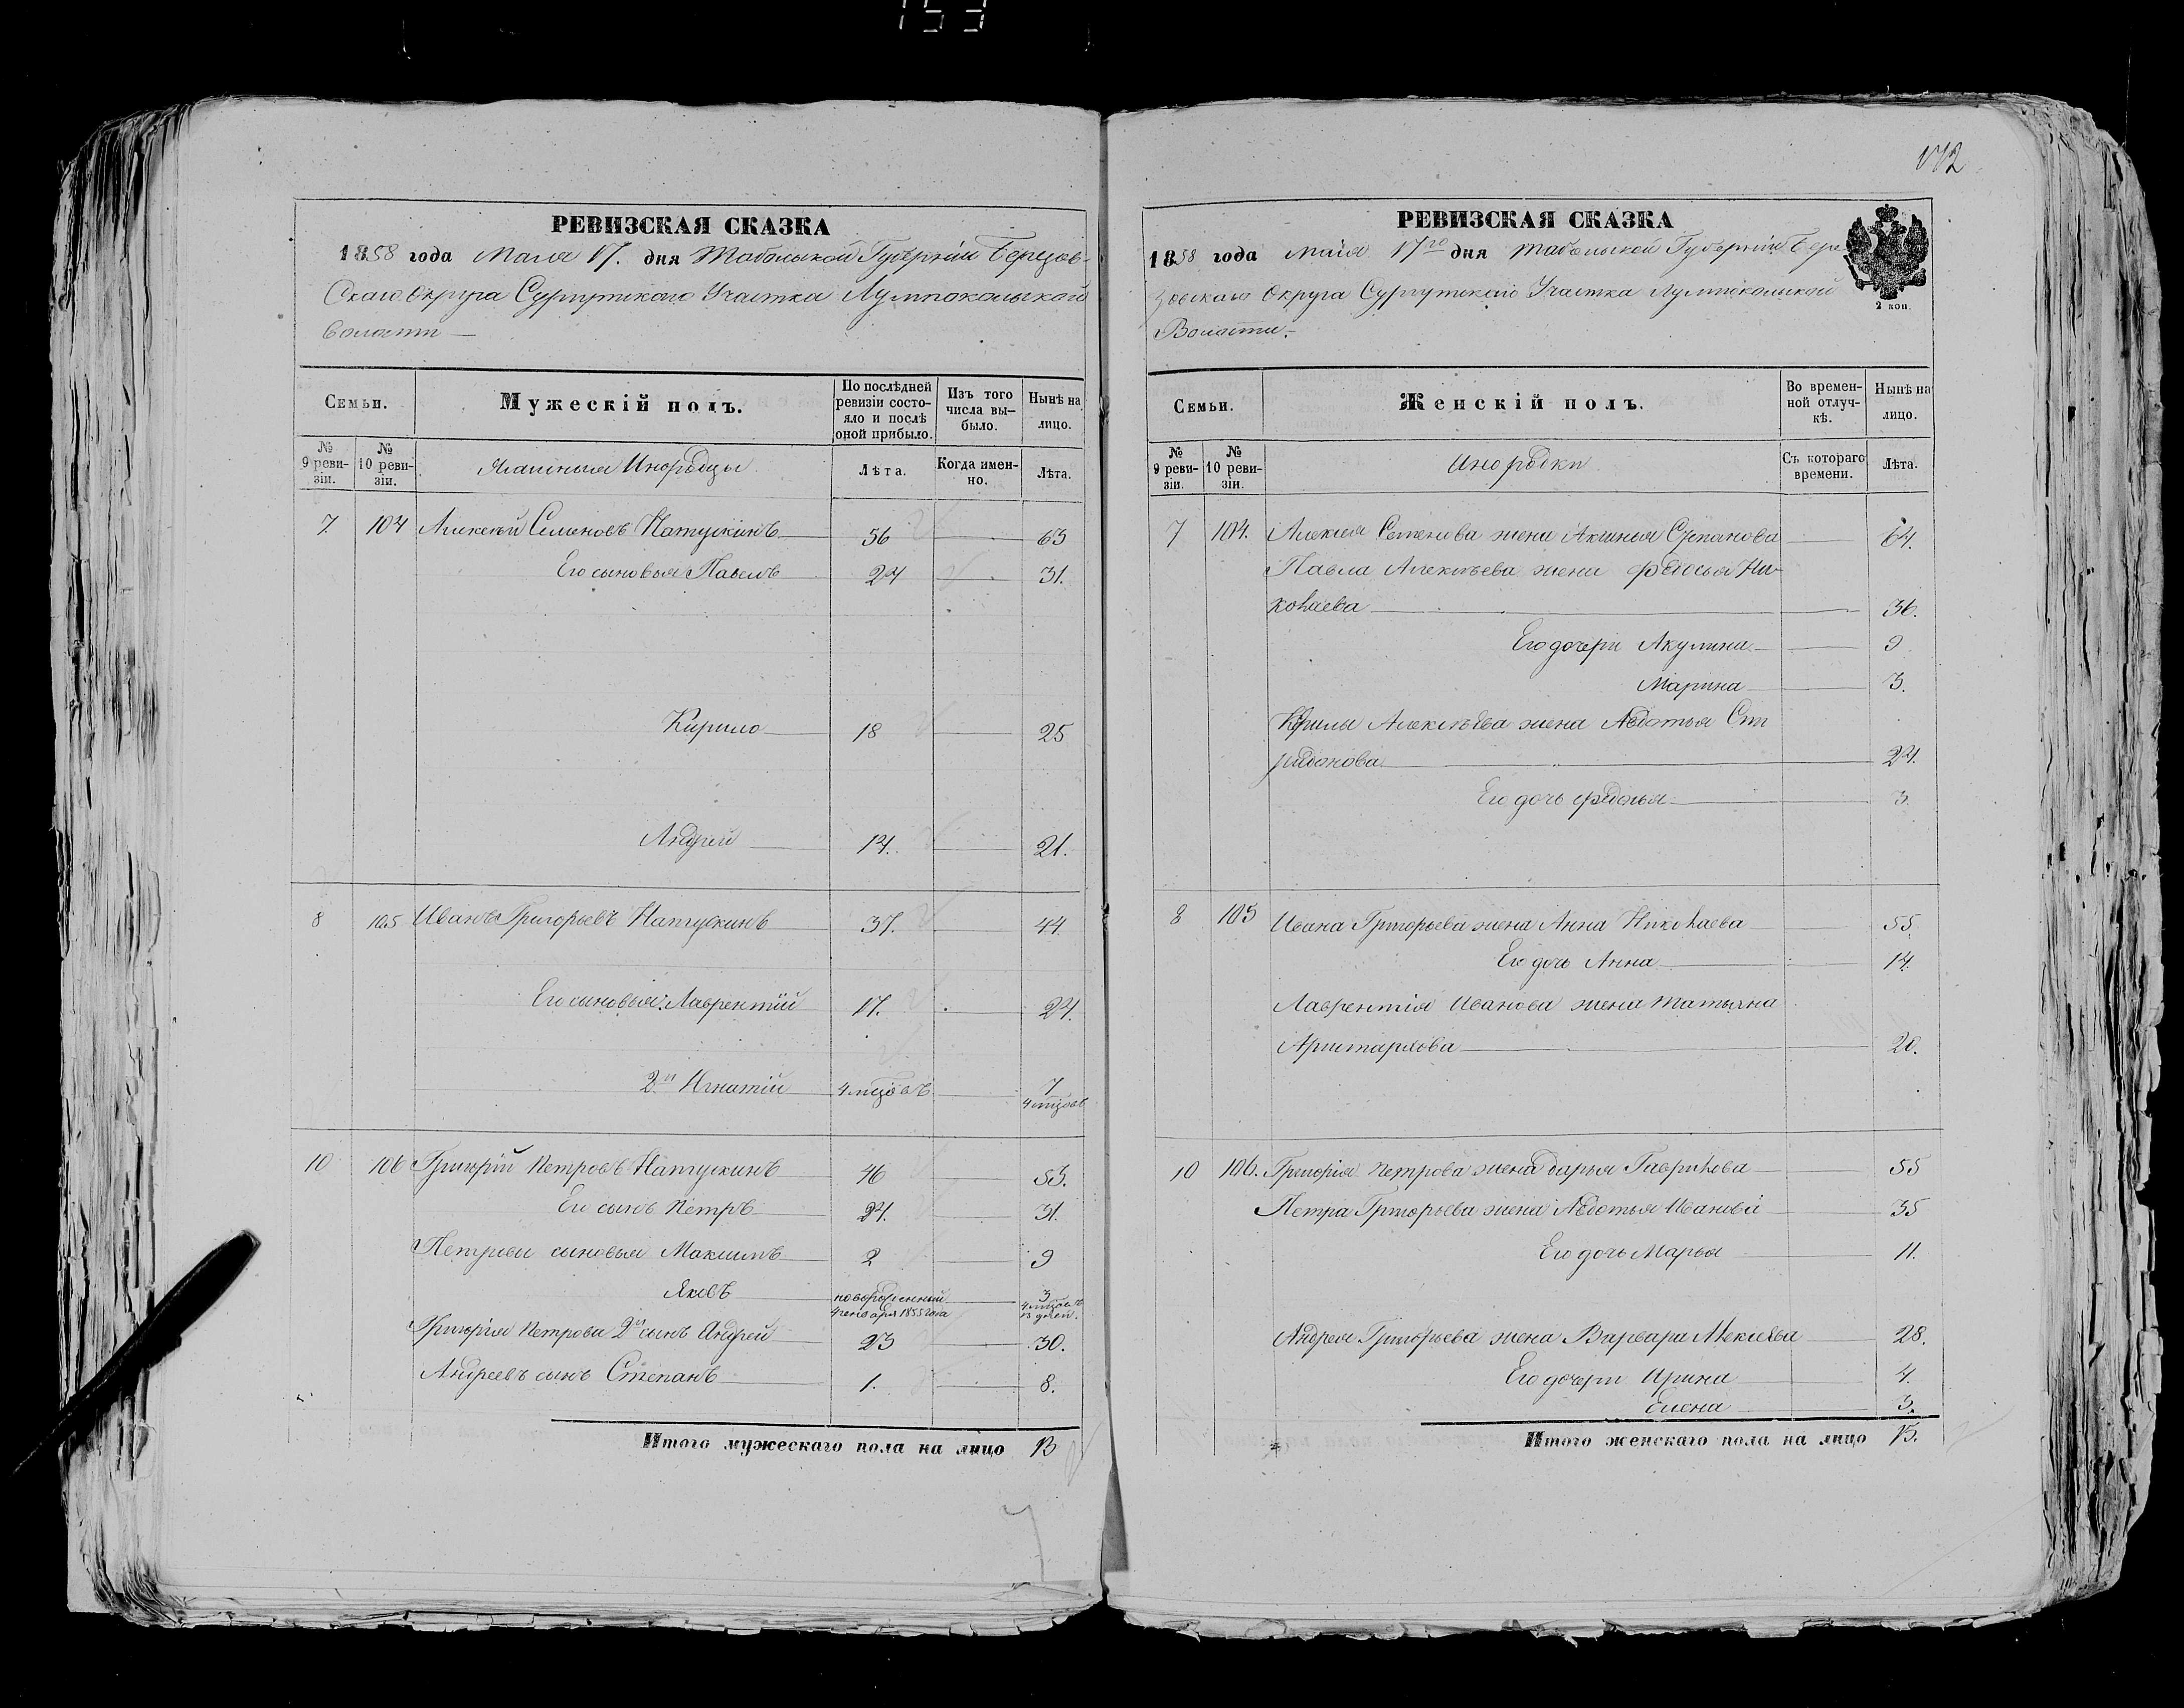 153
РЕВИЗСКАЯ СКАЗКА
1858 года Маія 17. дня Тобольской Губерніи Березов-
скаго Округа Сургутскаго Участка Лумпокольской
Волости
Семьи.
Мужескій полъ.
По послѣдней ревизіи состояло и послѣ оной прибыло.
Изъ того числа выбыло.
Нынѣ на лицо.
№ 9 ревизіи.
№ 10 ревизіи.
Инородцы
Лѣта.
Когда именно.
Лѣта.
7. 104 Алексѣй Семеновъ Натускинъ 56 63
Его сыновья Павелъ 24 31.
Кирило 18 25
Андрей 14. 21.
8 105 Иванъ Григорьевъ Натускинъ 37. 44
Его сыновья: Лаврентій 17. 24.
2й Игнатій 4 мцовъ 7 4 мцов
10 106 Григорій Петровъ Натускинъ 46 53.
Его сынъ Петръ 24. 31.
Петровы сыновья Максимъ 2 9
Яковъ новорожденный 4 генваря 1855 года 3 4 мцовъ 13 дней.
Григорія Петрова 2й сынъ Андрей 23 30.
Андреевъ сынъ Степанъ 1. 8.
Итого мужескаго пола на лицо 13
РЕВИЗСКАЯ СКАЗКА
1858 года маія 17го дня Тобольской Губерніи Бере
зовскаго Округа Сургутскаго Участка Лумпокольской
Волости.
2 коп.
Семьи.
Женскій полъ.
Во временной отлучкѣ.
Нынѣ на лицо.
№ 9 ревизіи.
№ 10 ревизіи.
Инородки
Съ котораго времени.
Лѣта.
7 104. Алексея Семенова жена Аксинья Степанова 64.
Павла Алексѣева жена Федосья Ни-
колаева 36.
Его дочери Акулина 9
Марина 3.
Кирилы Алексѣева жена Авдотья Спи
ридонова 24.
Его дочь 3.
8 105 Ивана Григорьева жена Анна Николаева 55.
Его дочь Анна 14.
Лаврентія Иванова жена Татьяна
Аристархова 20.
10 106. Григорія Петрова жена Дарья Гаврилова 55
Петра Григорьева жена Авдотья Иванова 35
Его дочь Марья 11.
Андрея Григорьева жена Варвара Алексѣева 28.
Его дочери Ирина 4.
Елена 3.
Итого женскаго пола на лицо 15.